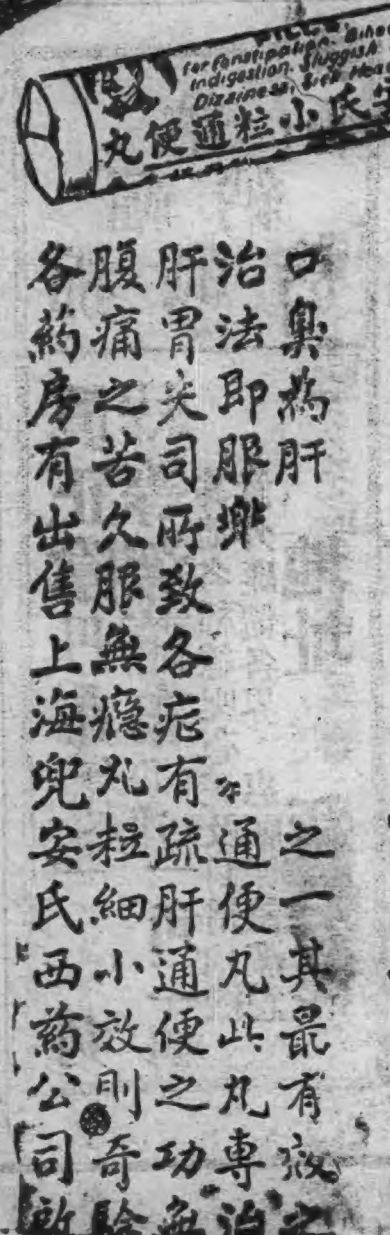 for Constipation,
Indigestion, Sluggish
Dizziness, Sick Hea
氏小粒通便丸
口臭為肝 之一其最有效之
治法即服 通便丸此丸專治
肝胃失司所致各症有疏肝通便之功無
腹痛之苦久服無癮丸粒細小效則奇驗
各葯房有出售上海兜安氏西葯公司啟